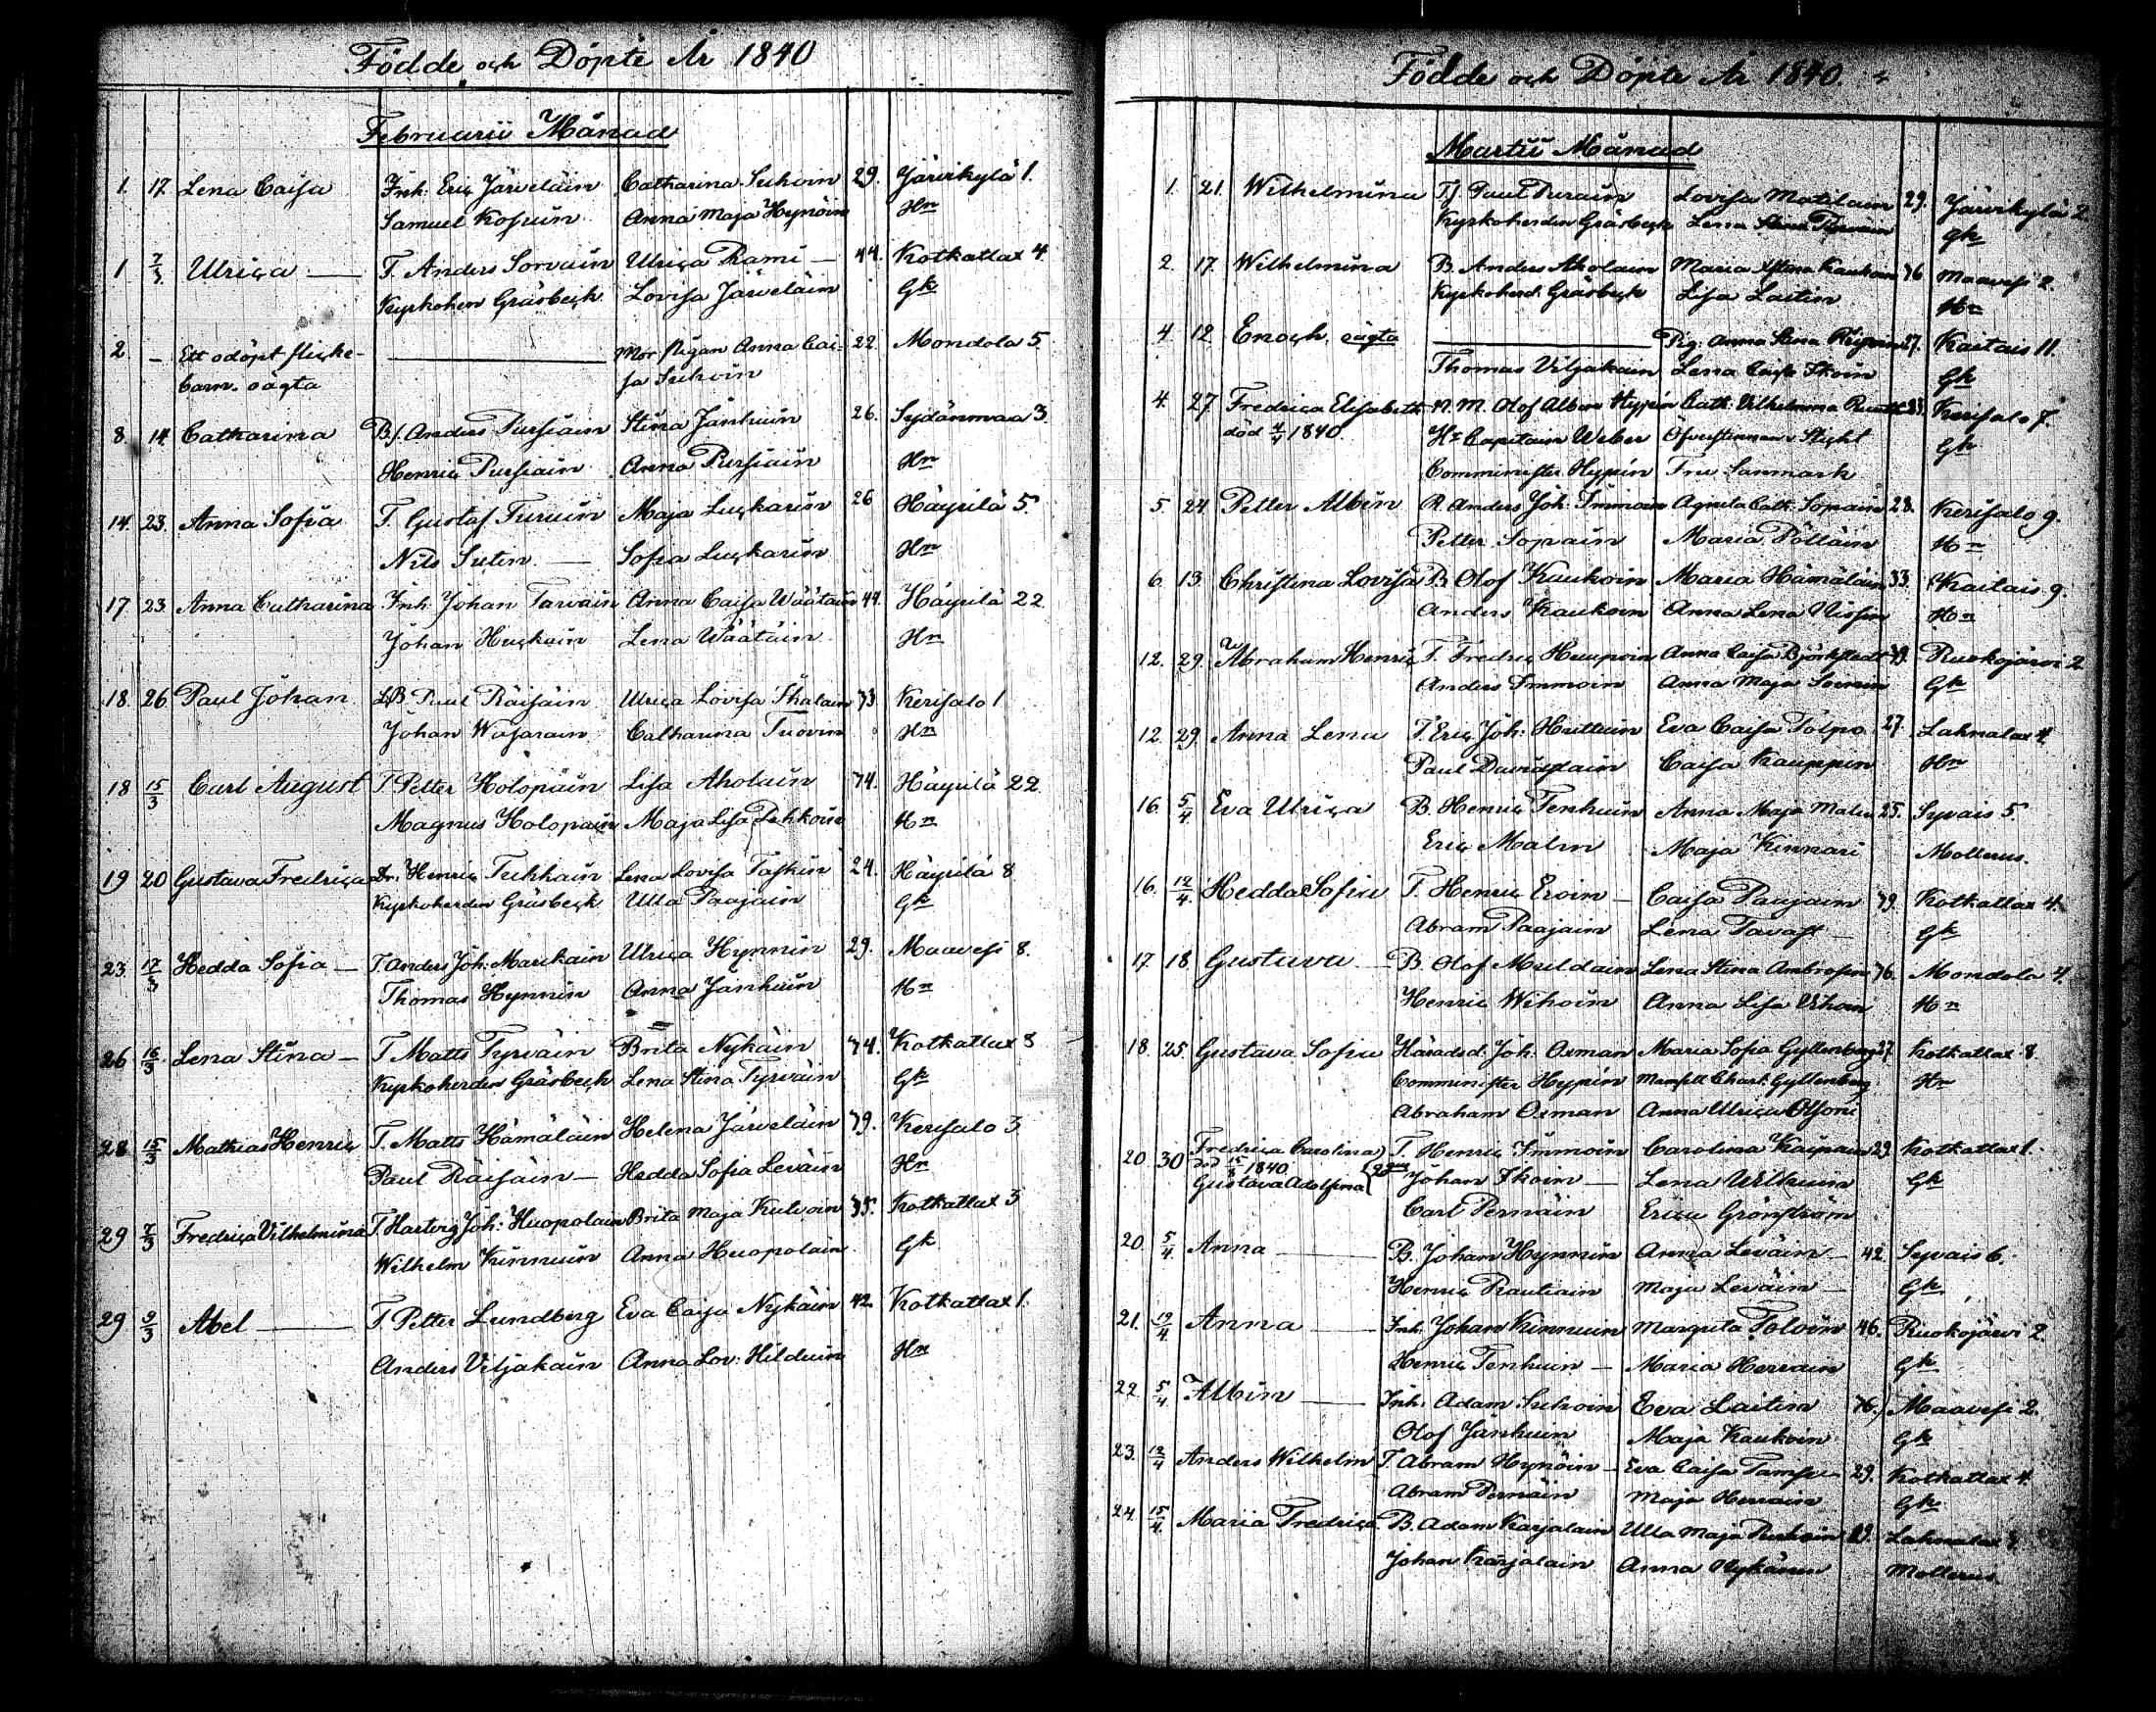 Födde och Döpte År 1840
Februarii Månad
1. 17. Lena Caisa Inh. Eric Järveläin Catharina Suhoin 29. Järvikylä 1.
Samuel Kosuin Anna Maja Hynöin Hn
1 7/3 Ulrica — T. Anders Sorvain Ulrica Rami — 44. Kotkatlax 4.
Kyrkoherr Gräsbeck Lovisa Järveläin Gk
2. — Ett odöpt flicke- — Mor Pigan Anna Cai- 22. Mondola 5.
barn. oägta sa Suhoin
8. 14. Catharina B/. Anders Pursiain Stina Jänhuin 26. Sydänmaa 3.
Henric Pursiain Anna Pursiain Hn
14. 23. Anna Sofia T. Gustaf Turuin Maja Luckarin 26 Häyrilä 5.
Nils Sutin — Sofia Luckarin Hn
17 23. Anna Catharina Inh. Johan Tarvain Anna Caisa Wäätäin 44. Häyrilä 22.
Johan Huckain Lena Wäätäin Hn
18. 26. Paul Johan Paul Räisäin Ulrica Lovisa 73 Kerisalo 1
Johan Wasarain Catharina Tuovin Hn
18 15/3 Carl August T. Petter Holopäin Lisa Aholain 74. Häyrilä 22.
Magnus Holopain Maja Lisa Pehkoin Hn
19 20 Gustava Fredrica Dr. Henric Tuhkain Lena Lovisa Taskin 24. Häyrilä 8
Kyrkoherden Gräsbeck Ulla Paajain Gk
23. 17/3 Hedda Sofia — T. Anders Joh. Marikain Ulrica Hynnin 29. Maavesi 8.
Thomas Hynnin Anna Jänhuin Hn
26 16/3 Lena Stina — T Matts Tyrväin Brita Nykäin 74. Kotkatlax 8
Kyrkoherden Gräsbeck Lena Stina Tyrväin Gk
28 15/3 Mathias Henric T. Matts Hämäläin Helena Järveläin 79. Kerisalo 3
Paul Räisäin — Hedda Sofia Leväin Hn
29 7/3 Fredrica Vilhelmina T Hartvig Joh: Huopolain Brita Maja Kulvoin 35. Kotkatlax 3
Wilhelm Kinnuin Anna Huopolain Gk
29 9/3 Abel — T Petter Lundberg Eva Caisa Nykäin 42. Kotkatlax 1.
Anders Viljakain Anna Lov: Hilduin Hn
Födde och Döpte År 1840.
Martii Månad
1. 21. Wilhelmina Tf. Paul Purain Lovisa Matilain 29. Järvikylä 2
Kyrkoherden Gräsbeck Lena Gk
2. 17. Wilhelmina B. Anders Aholain Maria Stina Kaukoin 76 Maavesi 2.
Kyrkoherd. Gräsbeck Lisa Laitin Hn
4 12 Enoch oägta — Pig. Anna Stina 27. Kaitais 11.
Thomas Viljakain Lena Caisa Ikoin Gk
4. 27 Fredrica Elisabeth N. M. Olof Albin Hypén Cath. Vilhelmina Kerisalo 7.
död 4/4 1840. Hr Capitain Weber Öfverstinnan Sticht Gk
Comminister Hypén Fru Sanmark
5. 24 Petter Albin R. Anders Joh. Immoin Agneta Cath. Sopain 28. Kerisalo 9.
Petter Sopain Maria Pölläin Hn
6. 13. Christina Lovisa B. Olof Kaukoin Maria Hämäläin 33. Kaitais 9.
Anders Kaukoin Anna Lena Nissin Hn
12. 29. Abraham Henric T. Fredric Huupoin Anna Caisa Björkstedt Ruokojärvi 2
Anders Immoin Anna Maja Gk
12. 29. Anna Lena T. Eric Joh: Huttuin Eva Caisa Tolpo 27. Lahnalax 4.
Paul Davidstain Caisa Kauppin Hn
16. 5/4 Eva Ulrica B. Henric Tenhuin Anna Maja Malin 25. Syvais 5.
Eric Malin Maja Kinnari Mollerus.
16. 12/4 Hedda Sofia T. Henric Eroin — Caisa Paajain 79. Kotkatlax 4.
Abram Paajain Lena Tavast — Gk
17. 18. Gustava — B. Olof Muldain Lena Stina Ambrosin 76. Mondola 4.
Henric Wihoin Anna Lisa Wihoin Hn
18. 25. Gustava Sofia Häradsd. Joh. Oxman Maria Sofia Gyllenberg 27. Kotkatlax 8.
Comminister Hypén Mamsell Charl. Gyllenberg Hn
Abraham Oxman Anna Ulrica Olsoni
20. 30 Fredrica Carolina T. Henric Immoin Carolina Kaipain 29. Kotkatlax 1.
död 15/8 1840 Johan Ikoin — Lena Wilkuin Gk
Gustava Adolfina Carl Pernäin Erica Grönström
20. 5/4 Anna — B. Johan Hynnin Anna Leväin — 42. Syvais 6.
Henric Rautiain Maja Leväin — Gk
21. 19/4 Anna — Inh. Johan Kinnuin Margreta Tolvin 46. Ruokojärvi 2.
Henric Tenhuin — Maria Hervain Gk
22. 5/4 Albin — Inh. Adam Suhoin Eva Laitin 76. Maavesi 2.
Olof Jänhuin Maja Kaukoin Gk
23. 12/4 Anders Wilhelm T. Abram Hynöin — Eva Caisa 29. Kotkatlax 4.
Abram Pernäin Maja Hervain Gk
24. 15/4 Maria Fredrica B. Adam Karjalain Ulla Maja Lahnalax
Johan Karjalain Anna Nykänen Mollerus.